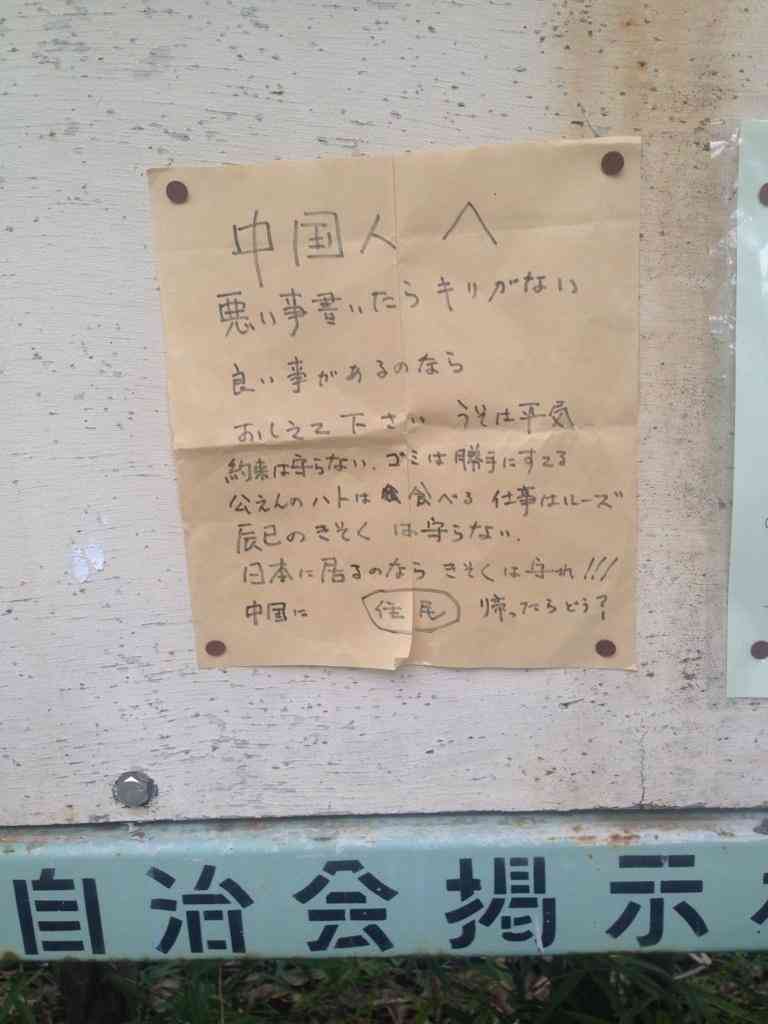 中国人へ
悪い事書いたらキリがない
良い事があるのなら
おしえて下さい うそは平気
約束は守らない、ゴミは勝手にすてる
公えんのハトは食べる 仕事はルーズ
辰巳のきそくは守らない、
日本に居るのなら きそくは守れ!!!
中国に 帰ったらどう?
自治会掲示